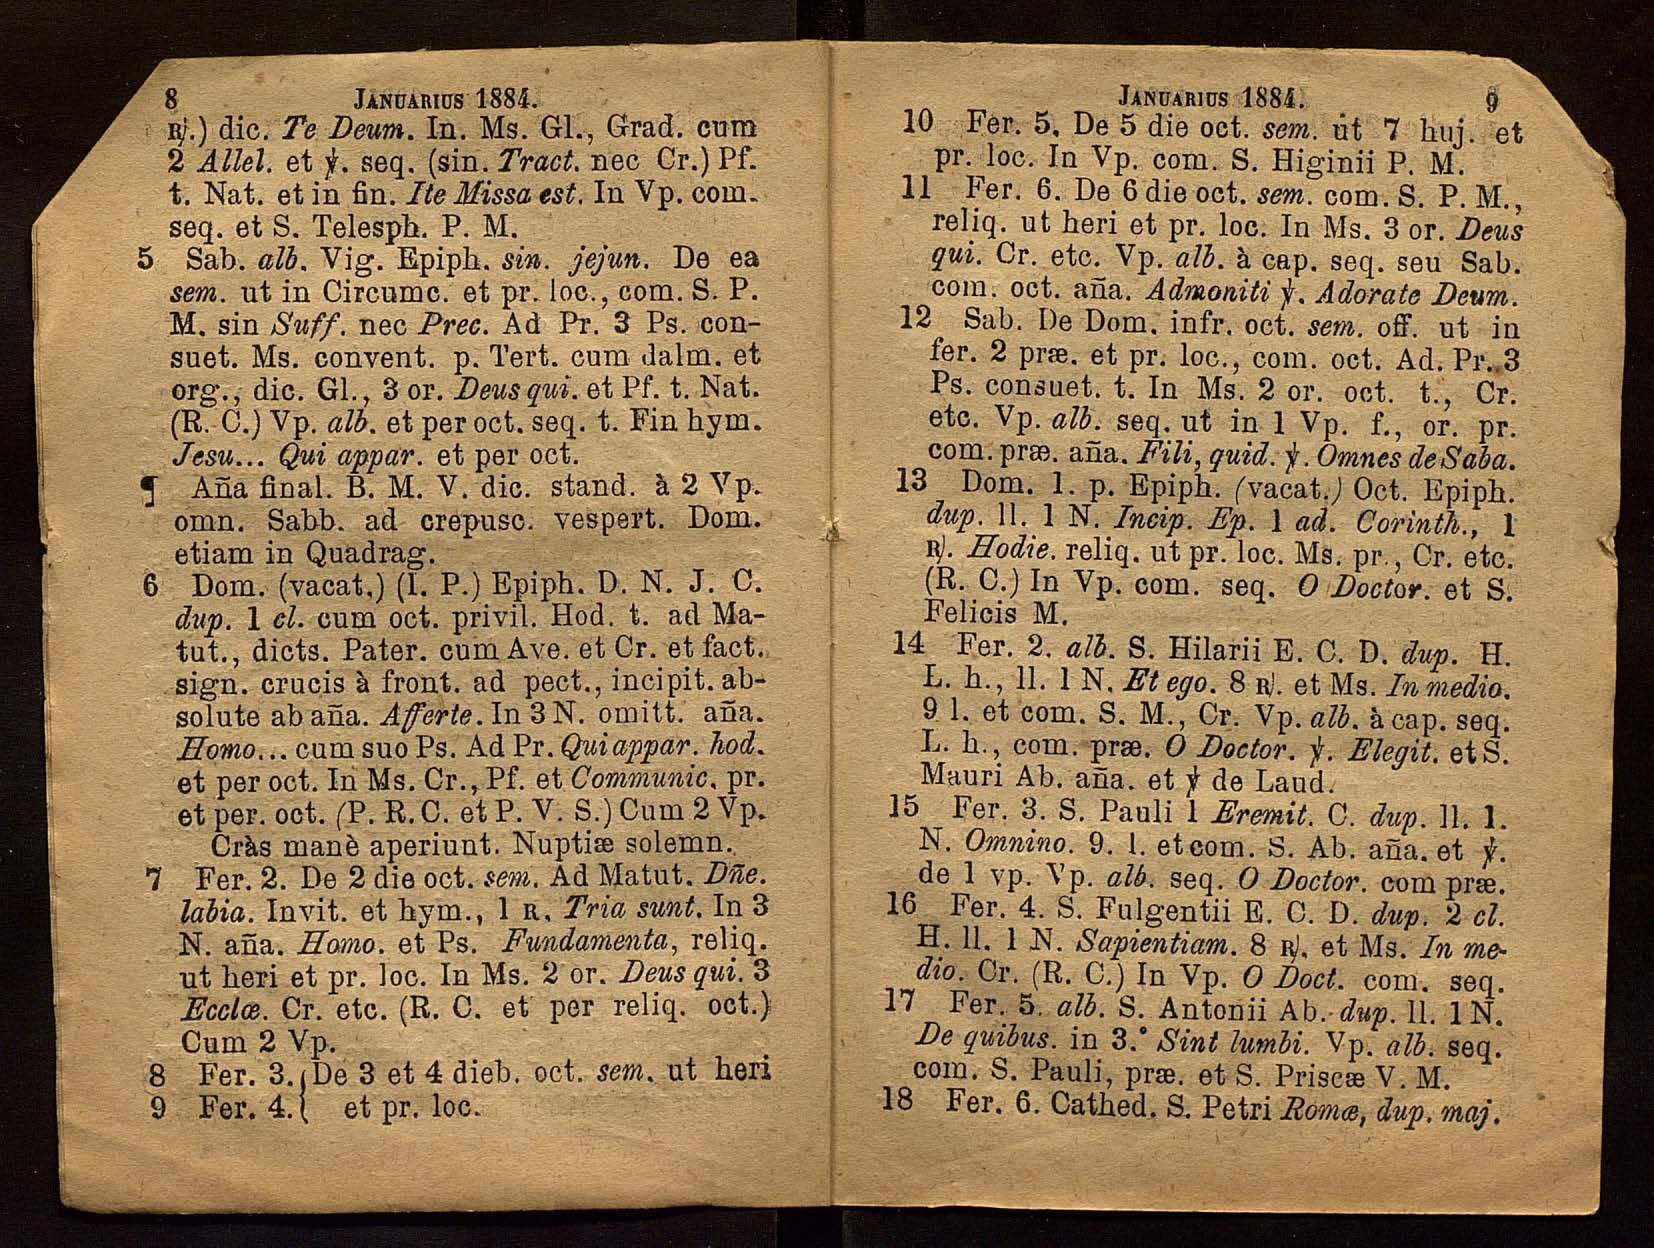 8 JANUARIUS 1884.
℟.) dic. Te Deum. In. Ms. Gl., Grad. cum
2 Allel. et ℣. seq. (sin. Tract. nec Cr.) Pf.
t. Nat. et in fin. Ite Missa est. In Vp. com.
seq. et S. Telesph. P. M.
5 Sab. alb. Vig. Epiph. sin. jejun. De ea
sem. ut in Circumc. et pr. loc., com. S. P.
M. sin Suff. nec Prec. Ad Pr. 3 Ps. con-
suet. Ms. convent. p. Tert. cum dalm. et
org., dic. Gl., 3 or. Deus qui. et Pf. t. Nat.
(R. C.) Vp. alb. et per oct. seq. t. Fin hym.
Jesu... Qui appar. et per oct.
¶ Aña final. B. M. V. dic. stand. à 2 Vp.
omn. Sabb. ad crepusc. vespert. Dom.
etiam in Quadrag.
6 Dom. (vacat.) (I. P.) Epiph. D. N. J. C.
dup. 1 cl. cum oct. privil. Hod. t. ad Ma-
tut., dicts. Pater. cum Ave. et Cr. et fact.
sign. crucis à front. ad pect., incipit. ab-
solute ab aña. Afferte. In 3 N. omitt. aña.
Homo... cum suo Ps. Ad Pr. Qui appar. hod.
et per oct. In Ms. Cr., Pf. et Communic. pr.
et per. oct. (P. R. C. et P. V. S.) Cum 2 Vp.
Cràs manè aperiunt. Nuptiæ solemn.
7 Fer. 2. De 2 die oct. sem. Ad Matut. Dñe.
labia. Invit. et hym., 1 R. Tria sunt. In 3
N. aña. Homo. et Ps. Fundamenta, reliq.
ut heri et pr. loc. In Ms. 2 or. Deus qui. 3
Ecclæ. Cr. etc. (R. C. et per reliq. oct.)
Cum 2 Vp.
8 Fer. 3. { De 3 et 4 dieb. oct. sem. ut heri
9 Fer. 4. { et pr. loc.
JANUARIUS 1884. 9
10 Fer. 5. De 5 die oct. sem. ut 7 huj. et
pr. loc. In Vp. com. S. Higinii P. M.
11 Fer. 6. De 6 die oct. sem. com. S. P. M.,
reliq. ut heri et pr. loc. In Ms. 3 or. Deus
qui. Cr. etc. Vp. alb. à cap. seq. seu Sab.
com. oct. aña. Admoniti ℣. Adorate Deum.
12 Sab. De Dom. infr. oct. sem. off. ut in
fer. 2 præ. et pr. loc., com. oct. Ad. Pr. 3
Ps. consuet. t. In Ms. 2 or. oct. t., Cr.
etc. Vp. alb. seq. ut in 1 Vp. f., or. pr.
com. præ. aña. Fili, quid. ℣. Omnes de Saba.
13 Dom. 1. p. Epiph. (vacat.) Oct. Epiph.
dup. ll. 1 N. Incip. Ep. 1 ad. Corinth., 1
℟. Hodie. reliq. ut pr. loc. Ms. pr., Cr. etc.
(R. C.) In Vp. com. seq. O Doctor. et S.
Felicis M.
14 Fer. 2. alb. S. Hilarii E. C. D. dup. H.
L. h., ll. 1 N. Et ego. 8 ℟. et Ms. In medio.
9 l. et com. S. M., Cr. Vp. alb. à cap. seq.
L. h., com. præ. O Doctor. ℣. Elegit. et S.
Mauri Ab. aña. et ℣ de Laud.
15 Fer. 3. S. Pauli 1 Eremit. C. dup. ll. 1.
N. Omnino. 9. l. et com. S. Ab. aña. et ℣.
de 1 vp. Vp. alb. seq. O Doctor. com præ.
16 Fer. 4. S. Fulgentii E. C. D. dup. 2 cl.
H. ll. 1 N. Sapientiam. 8 ℟. et Ms. In me-
dio. Cr. (R. C.) In Vp. O Doct. com. seq.
17 Fer. 5. alb. S. Antonii Ab. dup. ll. 1 N.
De quibus. in 3.° Sint lumbi. Vp. alb. seq.
com. S. Pauli, præ. et S. Priscæ V. M.
18 Fer. 6. Cathed. S. Petri Romæ, dup. maj.